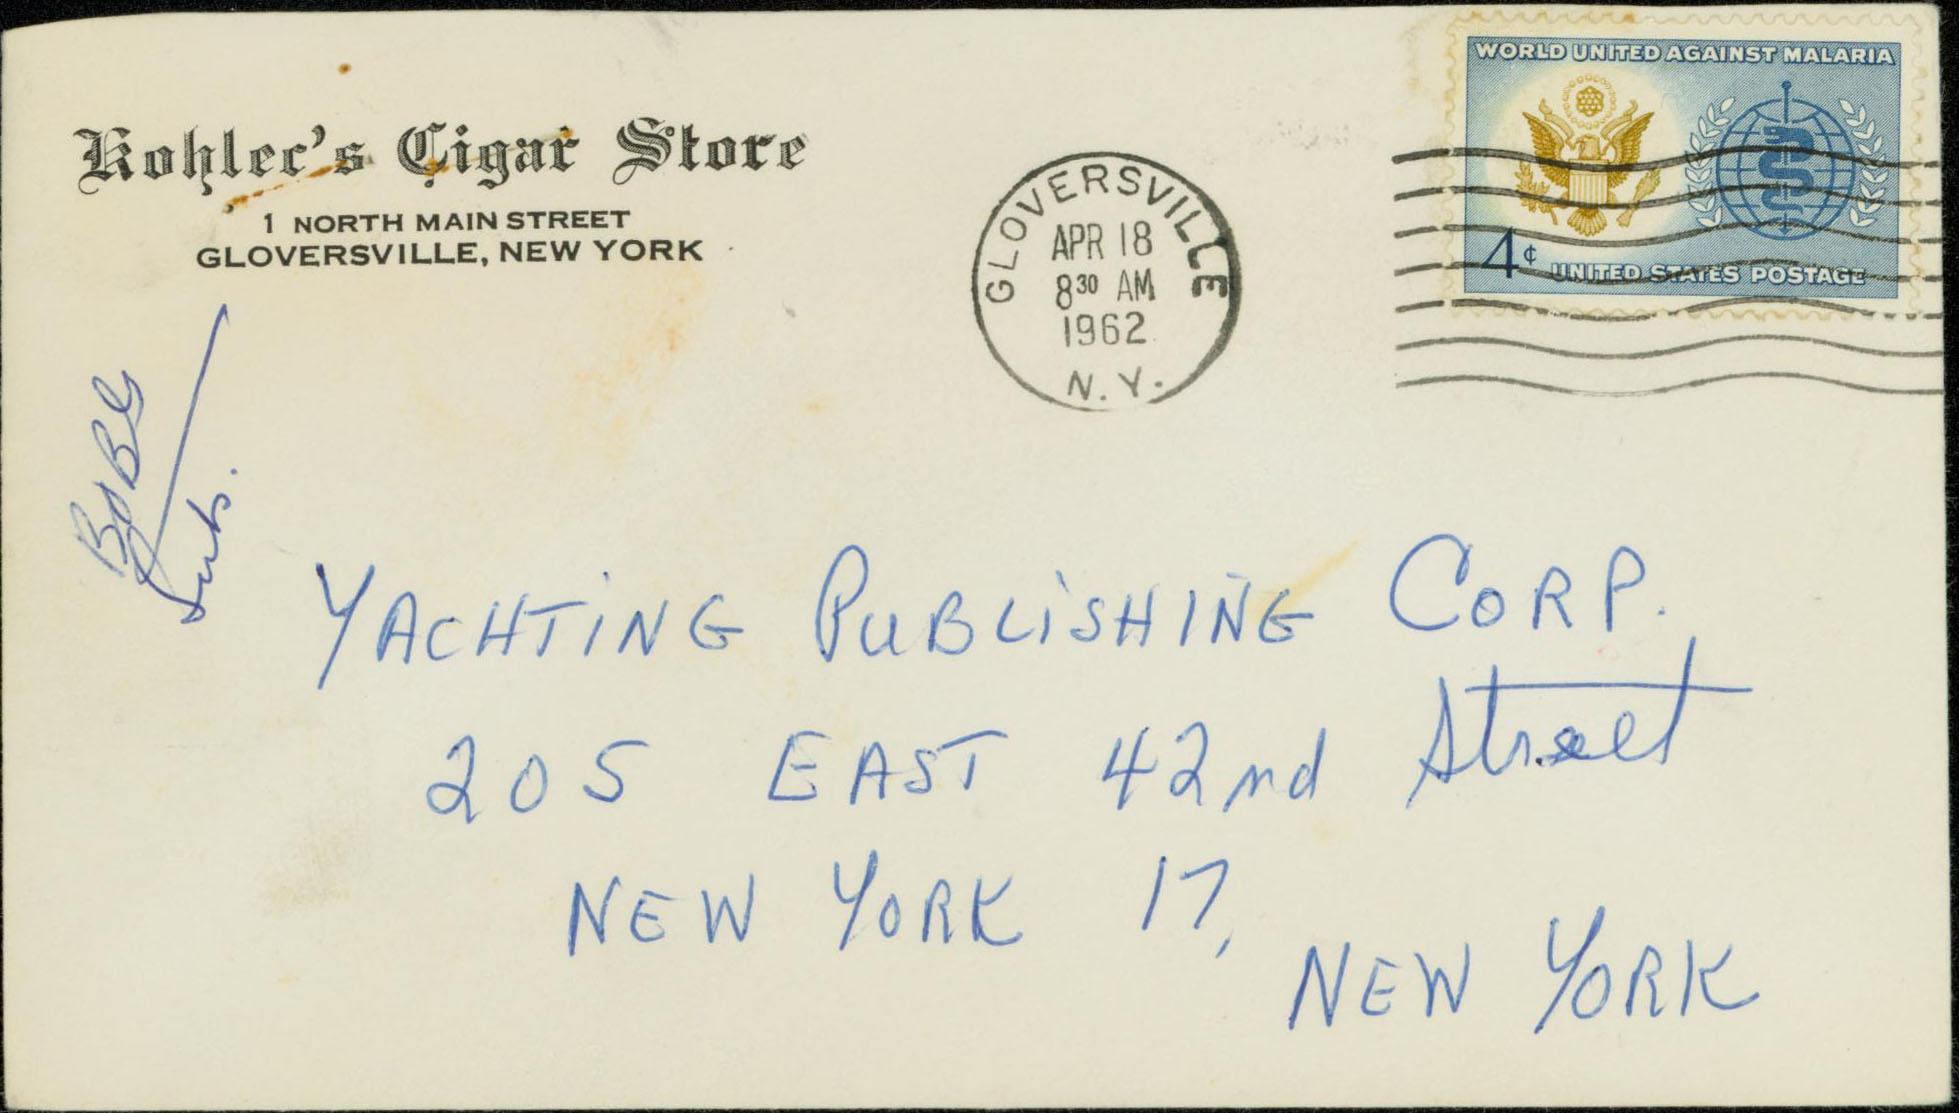 Kohler's Cigar Store
1 NORTH MAIN STREET
GLOVERSVILLE, NEW YORK
GLOVERSVILLE
APR 18
8 30 AM
1962
N. Y.
WORLD UNITED AGAINST MALARIA
4¢ UNITED STATES POSTAGE
YACHTING PUBLISHING CORP.
205 EAST 42nd Street
NEW YORK 17,
NEW YORK